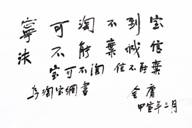 寧可淘不到宝
決不能棄誠信
宝可不淘 信不能棄
為淘宝網書 金庸
甲申年二月